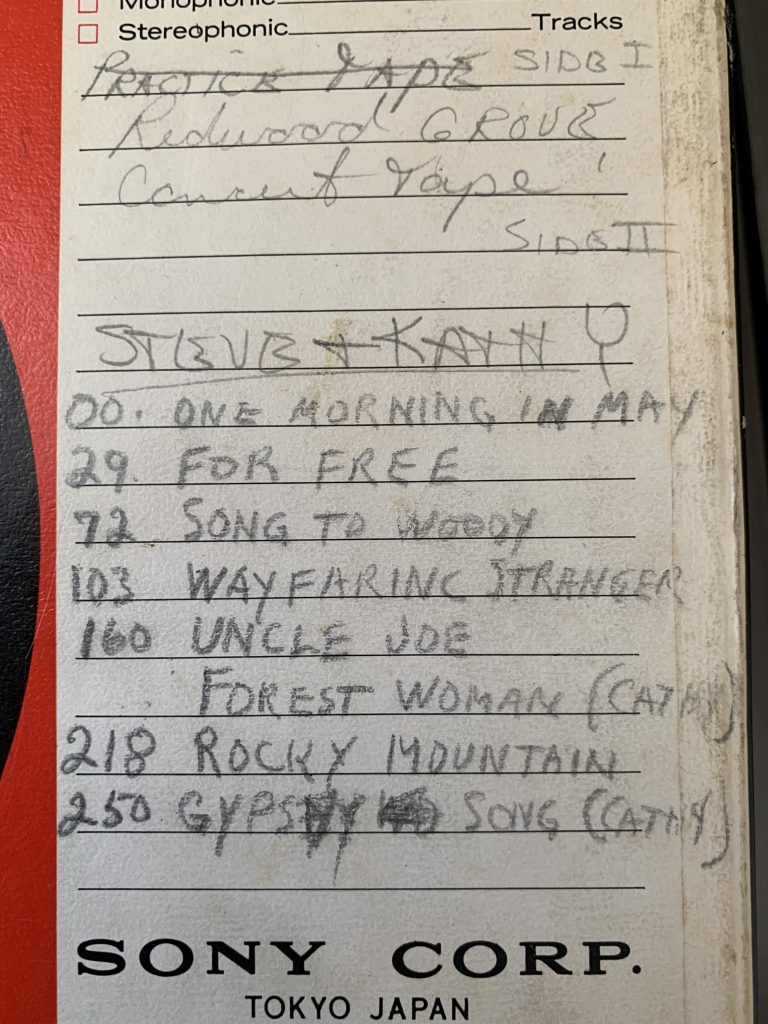 Monophonic
Stereophonic Tracks
PRACTICE TAPE SIDE I
Redwood GROVE
Concert Tape!
SIDE II
STEVE + KATHY
00. ONE MORNING IN MAY
29. FOR FREE
72. SONG TO WOODY
103 WAYFARING STRANGER
160 UNCLE JOE
FOREST WOMAN (CATHY)
218 ROCKY MOUNTAIN
250 GYPSY SONG (CATHY)
SONY CORP.
TOKYO JAPAN